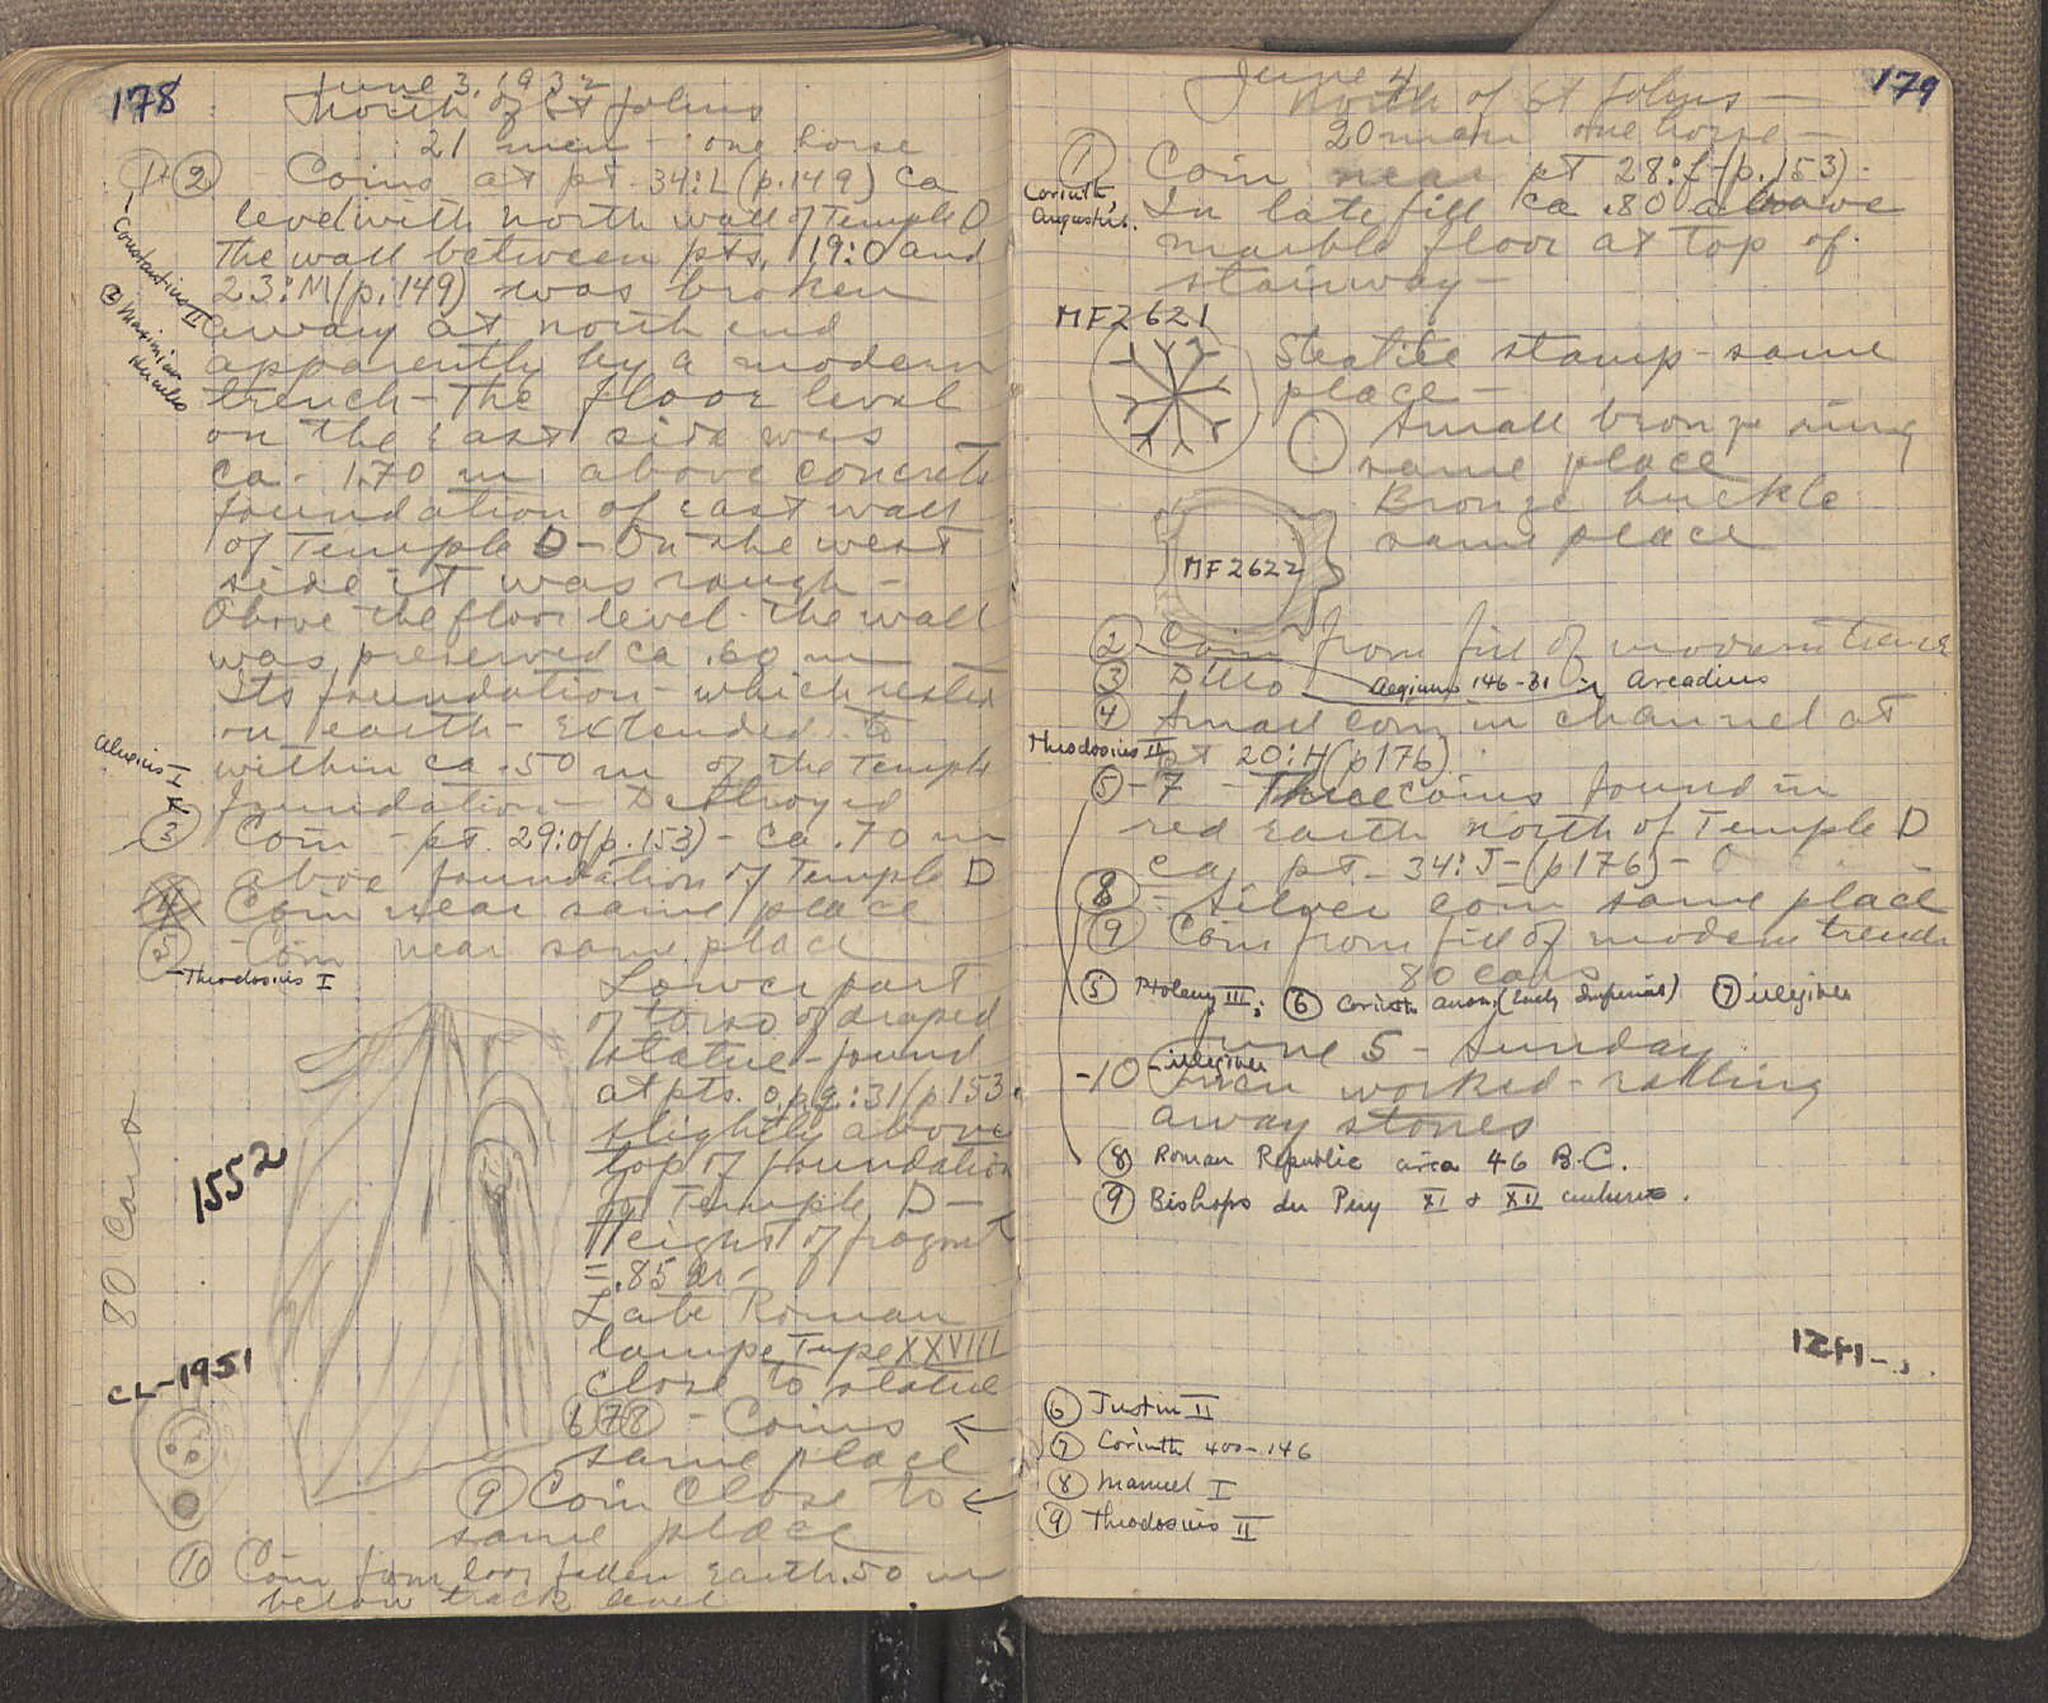 178
June 3, 1932
North of St Johns
21 men - one horse
1+2 Coins at pt. 34:L (p.149) ca
level with north wall of Temple D
The wall between pts. 19:O and
23:M (p.149) was broken
away at north end
apparently by a modern
trench - The floor level
on the east side was
ca. 1.70 m above concrete
foundation of east wall
of Temple D - On the west
side it was rough -
Above the floor level the wall
was preserved ca .60 m
Its foundation - which rested
on earth - extended to
within ca .50 m of the Temple
foundation - Destroyed
3 Coin - pt. 29:o (p.153) - ca .70 m
above foundation of Temple D
4 Coin near same place
5 - Coin near same place
- Theodosius I
- Constantius II
2 Maximian
Hercules
Alexius I
Lower part
of torso of draped
statue - found
at pts. o,p,q:31 (p153.
slightly above
top of foundation
of Temple D -
Height of fragmt
= .85 m -
Late Roman
lamp Type XXVIII
close to statue
6 7 8 - Coins
same place
9 Coin close to
same place
10 Coin from loos fallen earth .50 m
below track level
80 cars
1552
CL-1951
179
June 4
North of St Johns -
20 men one horse -
1 Coin near pt 28:f (p.153) -
Corinth,
Augustus.
In late fill ca .80 above
marble floor at top of
stairway -
MF2621
Steatite stamp - same
place -
Small bronze ring
same place
Bronze buckle
same place
MF2622
2 Coin from fill of modern trench
3 Ditto Aegium 146-31 Arcadius
4 Small coin in channel at
Theodosius II
pt 20:H (p176)
5 - 7 - Three coins found in
red earth north of Temple D
ca. pt. 34:J - (p176) -
8 - Silver coin same place
9 Coin from fill of modern trench
80 cars
5 Ptolemy III; 6 Corinth anon. (Early Imperial) 7 illegible
June 5 - Sunday
-10 - illegible
men worked - rolling
away stones
8 Roman Republic circa 46 B.C.
9 Bishops du Puy XI & XII centuries.
6 Justin II
7 Corinth 400-146
8 Manuel I
9 Theodosius II